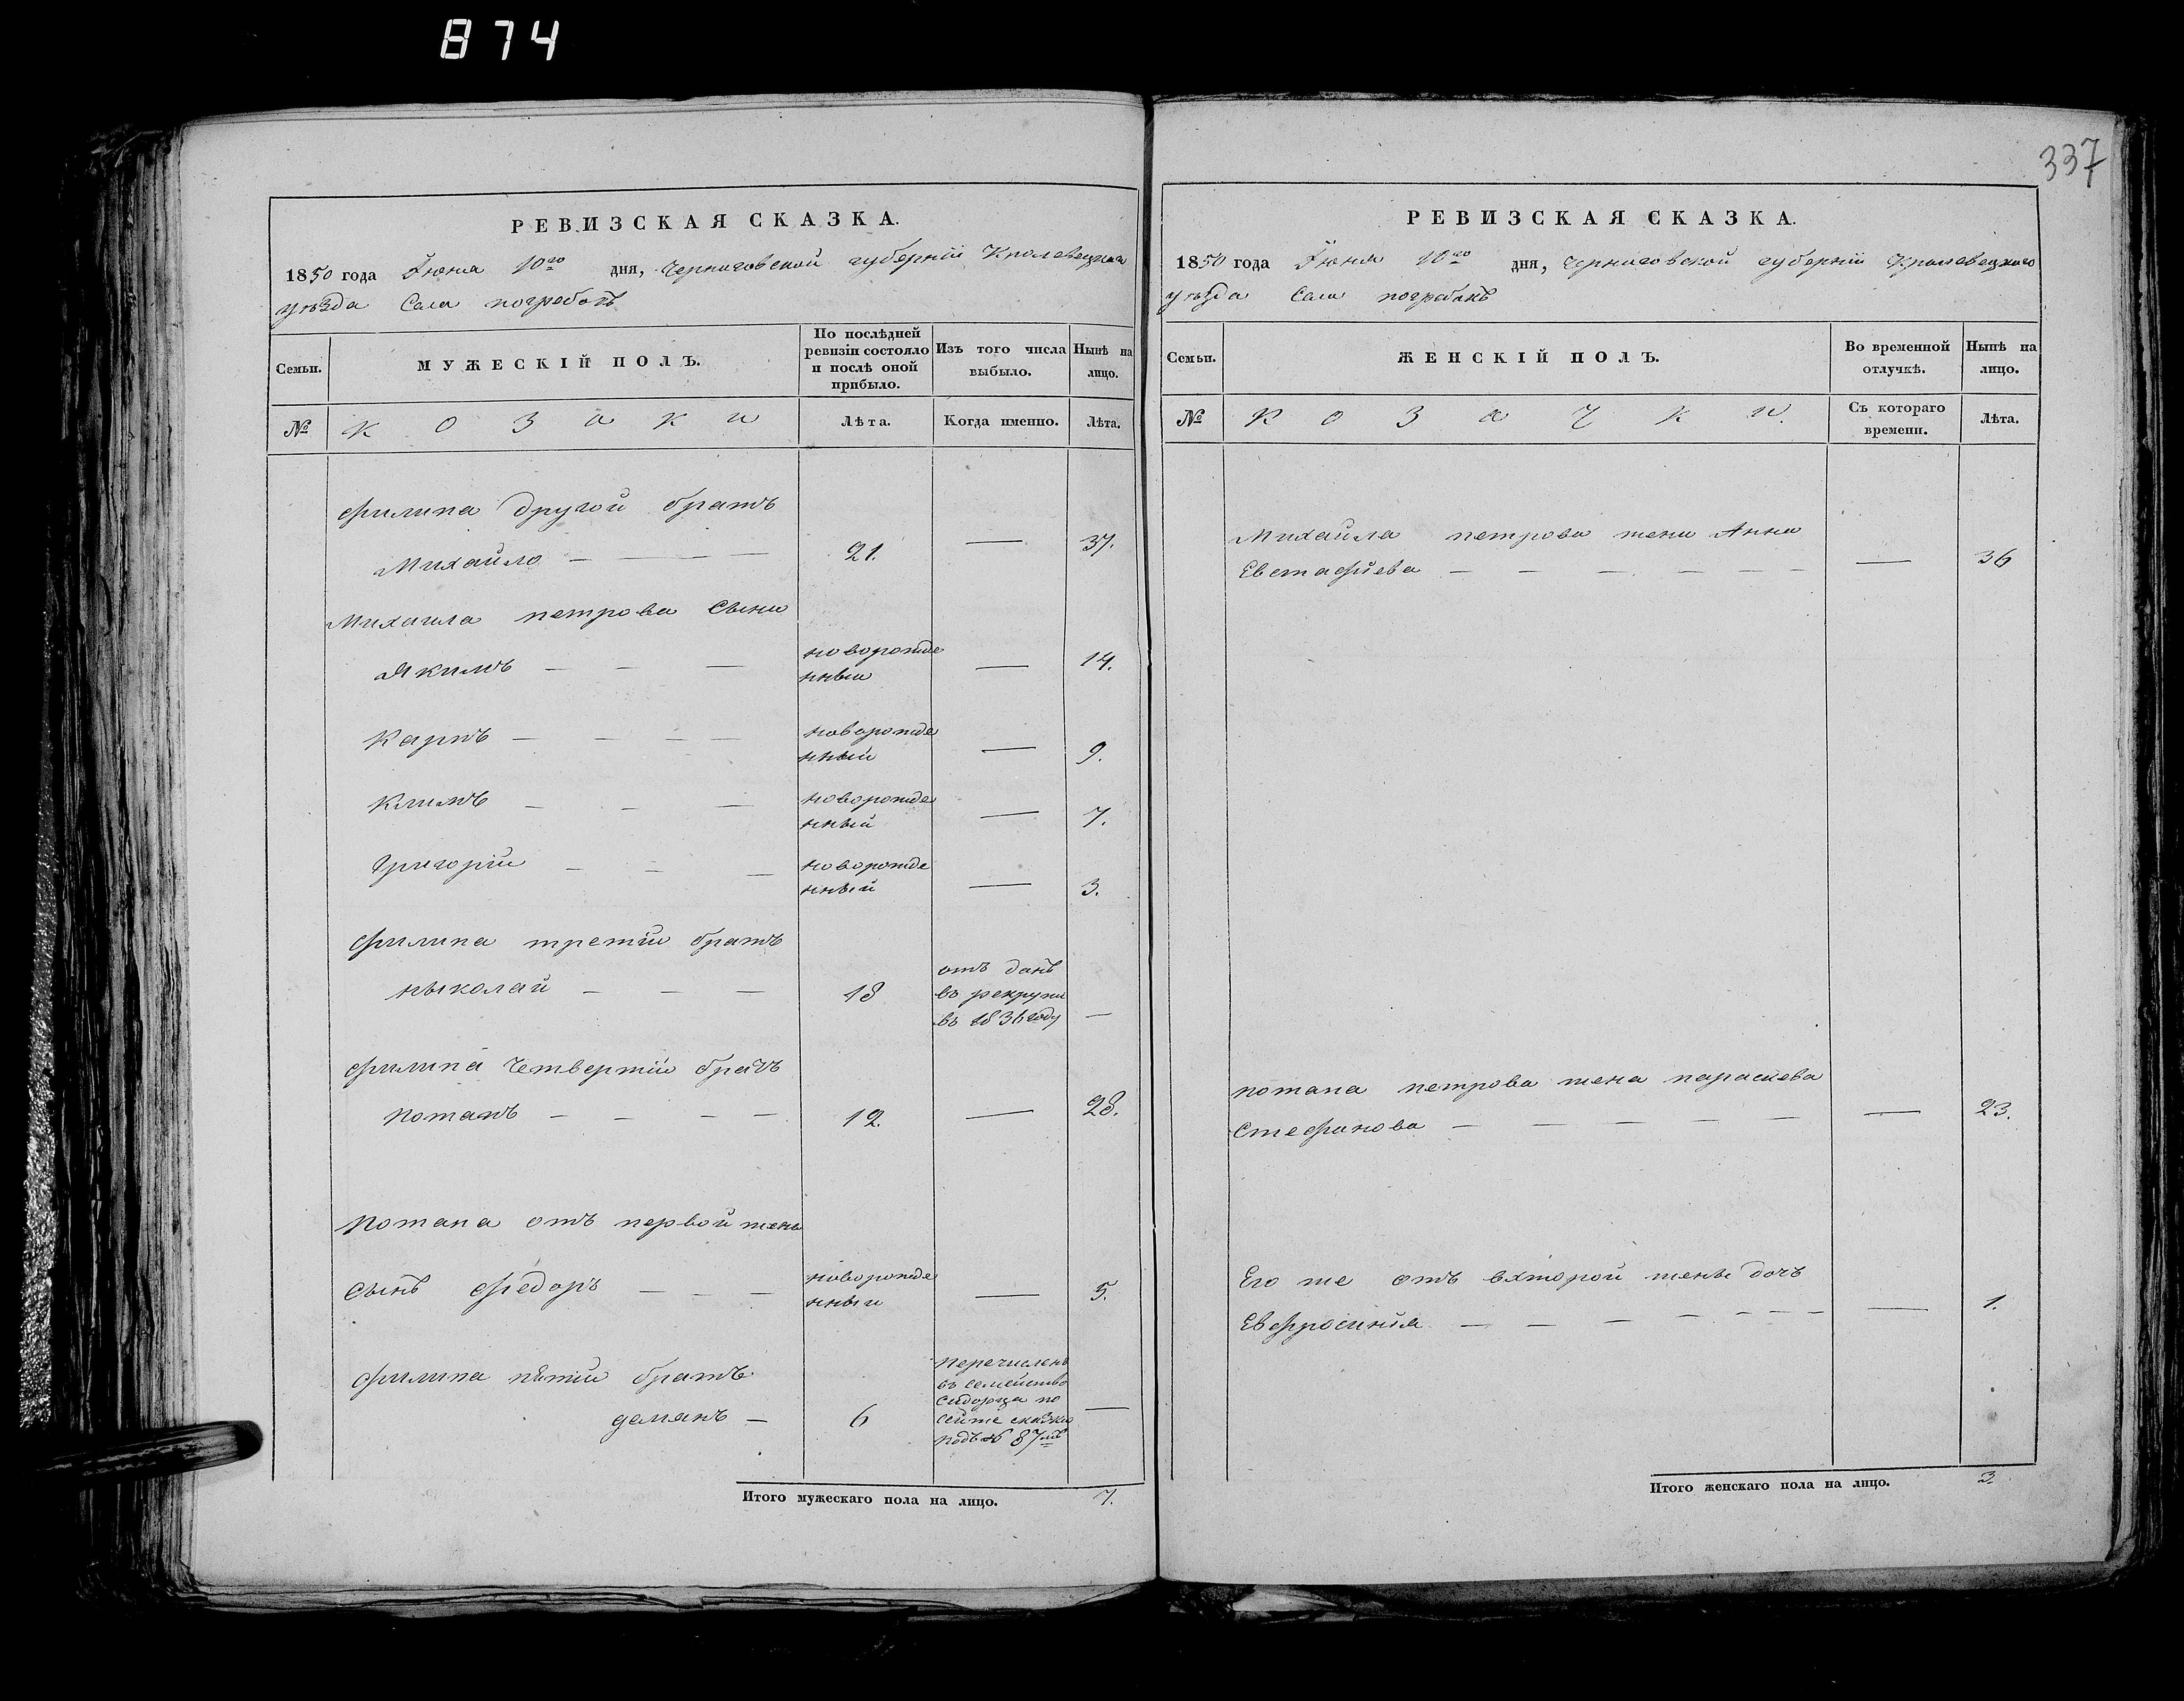 874
337
РЕВИЗСКАЯ СКАЗКА.
1850 года Июня 10го дня, Черниговской губерніи Кролевецкаго
уѣзда Села погребокъ
Семьи.
МУЖЕСКІЙ ПОЛЪ.
По послѣдней
ревизіи состояло
и послѣ оной
прибыло.
Изъ того числа
выбыло.
Нынѣ на
лицо.
№
козаки
Лѣта.
Когда именно.
Лѣта.
Филипа другой братъ
Михайло — — — — 21. — 37.
Михаила петрова Сыни
Якимъ — — — новорожде
нный — 14.
Карпъ — — — — новорожде
нный — 9.
Климъ — — — новорожде
нный — 7.
Григорій — — — новорожде
нный — 3.
Филипа третій братъ
ныколай — — — 18 отъ данъ
въ рекруты
въ 1836 году —
Филипа Четвертій братъ
потапъ — — — — 12. — 28.
Потапа отъ первой жены
сынъ Федоръ — — — новорожде
нный — 5.
Филипа пятій братъ
демянъ — 6
перечисленъ
въ семейство
Сидорца по
сейже сказки
подъ № 87мъ —
Итого мужескаго пола на лицо. 7.
РЕВИЗСКАЯ СКАЗКА.
1850 года Июня 10го дня, Черниговской губерніи Кролевецкаго
уѣзда Села погребокъ
Семьи.
ЖЕНСКІЙ ПОЛЪ.
Во временной
отлучкѣ.
Нынѣ на
лицо.
№
козачки.
Съ котораго
времени.
Лѣта.
Михайла петрова жена Анна
Евстафіева — — — — — — — 36
потапа петрова жена параскева
Стефанова — — — — — — 23.
Его же отъ вхторой жены дочъ
Евфросинія — — — — — — — — 1.
Итого женскаго пола на лицо. 3.